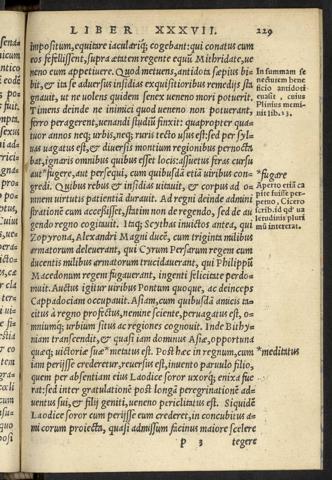 LIBER XXXVII. 229
impositum, equitare iaculariq; cogebant: qui conatus cum
eos fefellissent, supra ætatem regente equū Mithridate, ue
neno eum appetiuere. Quod metuens, antidota sæpius bi-
bit, & ita se aduersus insidias exquisitioribus remedijs sta
gnauit, ut ne uolens quidem senex ueneno mori potuerit.
Timens deinde ne inimici quod ueneno non potuerant,
ferro peragerent, uenandi studiū finxit: quapropter qua-
tuor annos neq; urbis, neq; ruris tecto usus est: sed per syl-
uas uagatus est, & diuersis montium regionibus pernocta
bat, ignaris omnibus quibus esset locis: assuetus feras cursu
aut *fugere, aut persequi, cum quibusdā etiā uiribus con-
gredi. Quibus rebus & insidias uitauit, & corpus ad o-
mnem uirtutis patientiā durauit. Ad regni deinde admini
strationē cum accessisset, statim non de regendo, sed de au
gendo regno cogitauit. Itaq; Scythas inuictos antea, qui
Zopyrona, Alexandri Magni ducē, cum triginta milibus
armatorum deleuerant, qui Cyrum Persarum regem cum
ducentis milibus armatorum trucidauerant, qui Philippū
Macedonum regem fugauerant, ingenti felicitate perdo-
muit. Auctus igitur uiribus Pontum quoque, ac deinceps
Cappadociam occupauit. Asiam, cum quibusdā amicis ta
citus à regno profectus, nemine sciente, peruagatus est, o-
mniumq; urbium situs ac regiones cognouit. Inde Bithy-
niam transcendit, & quasi iam domunus Asiæ, opportuna
quæq; uictoriæ suæ *metatus est. Post hæc in regnum, cum
iam perijsse crederetur, reuersus est, inuento paruulo filio,
quem per absentiam eius Laodice soror uxorq; enixa fue
rat: sed inter gratulationē post longā peregrinationē ad-
uentus sui, & filij geniti, ueneno periclitatus est. Siquidē
Laodice soror cum perijsse eum crederet, in concubitus a-
micorum proiecta, quasi admissum facinus maiore scelere
p 3 tegere
In summam se
nectutem bene
ficio antidoti
euasit, cuius
Plinius memi-
nit lib. 23.
*fugare
Aperto etiā ca
pite fuisse per
petuo, Cicero
scrib.
*meditatus